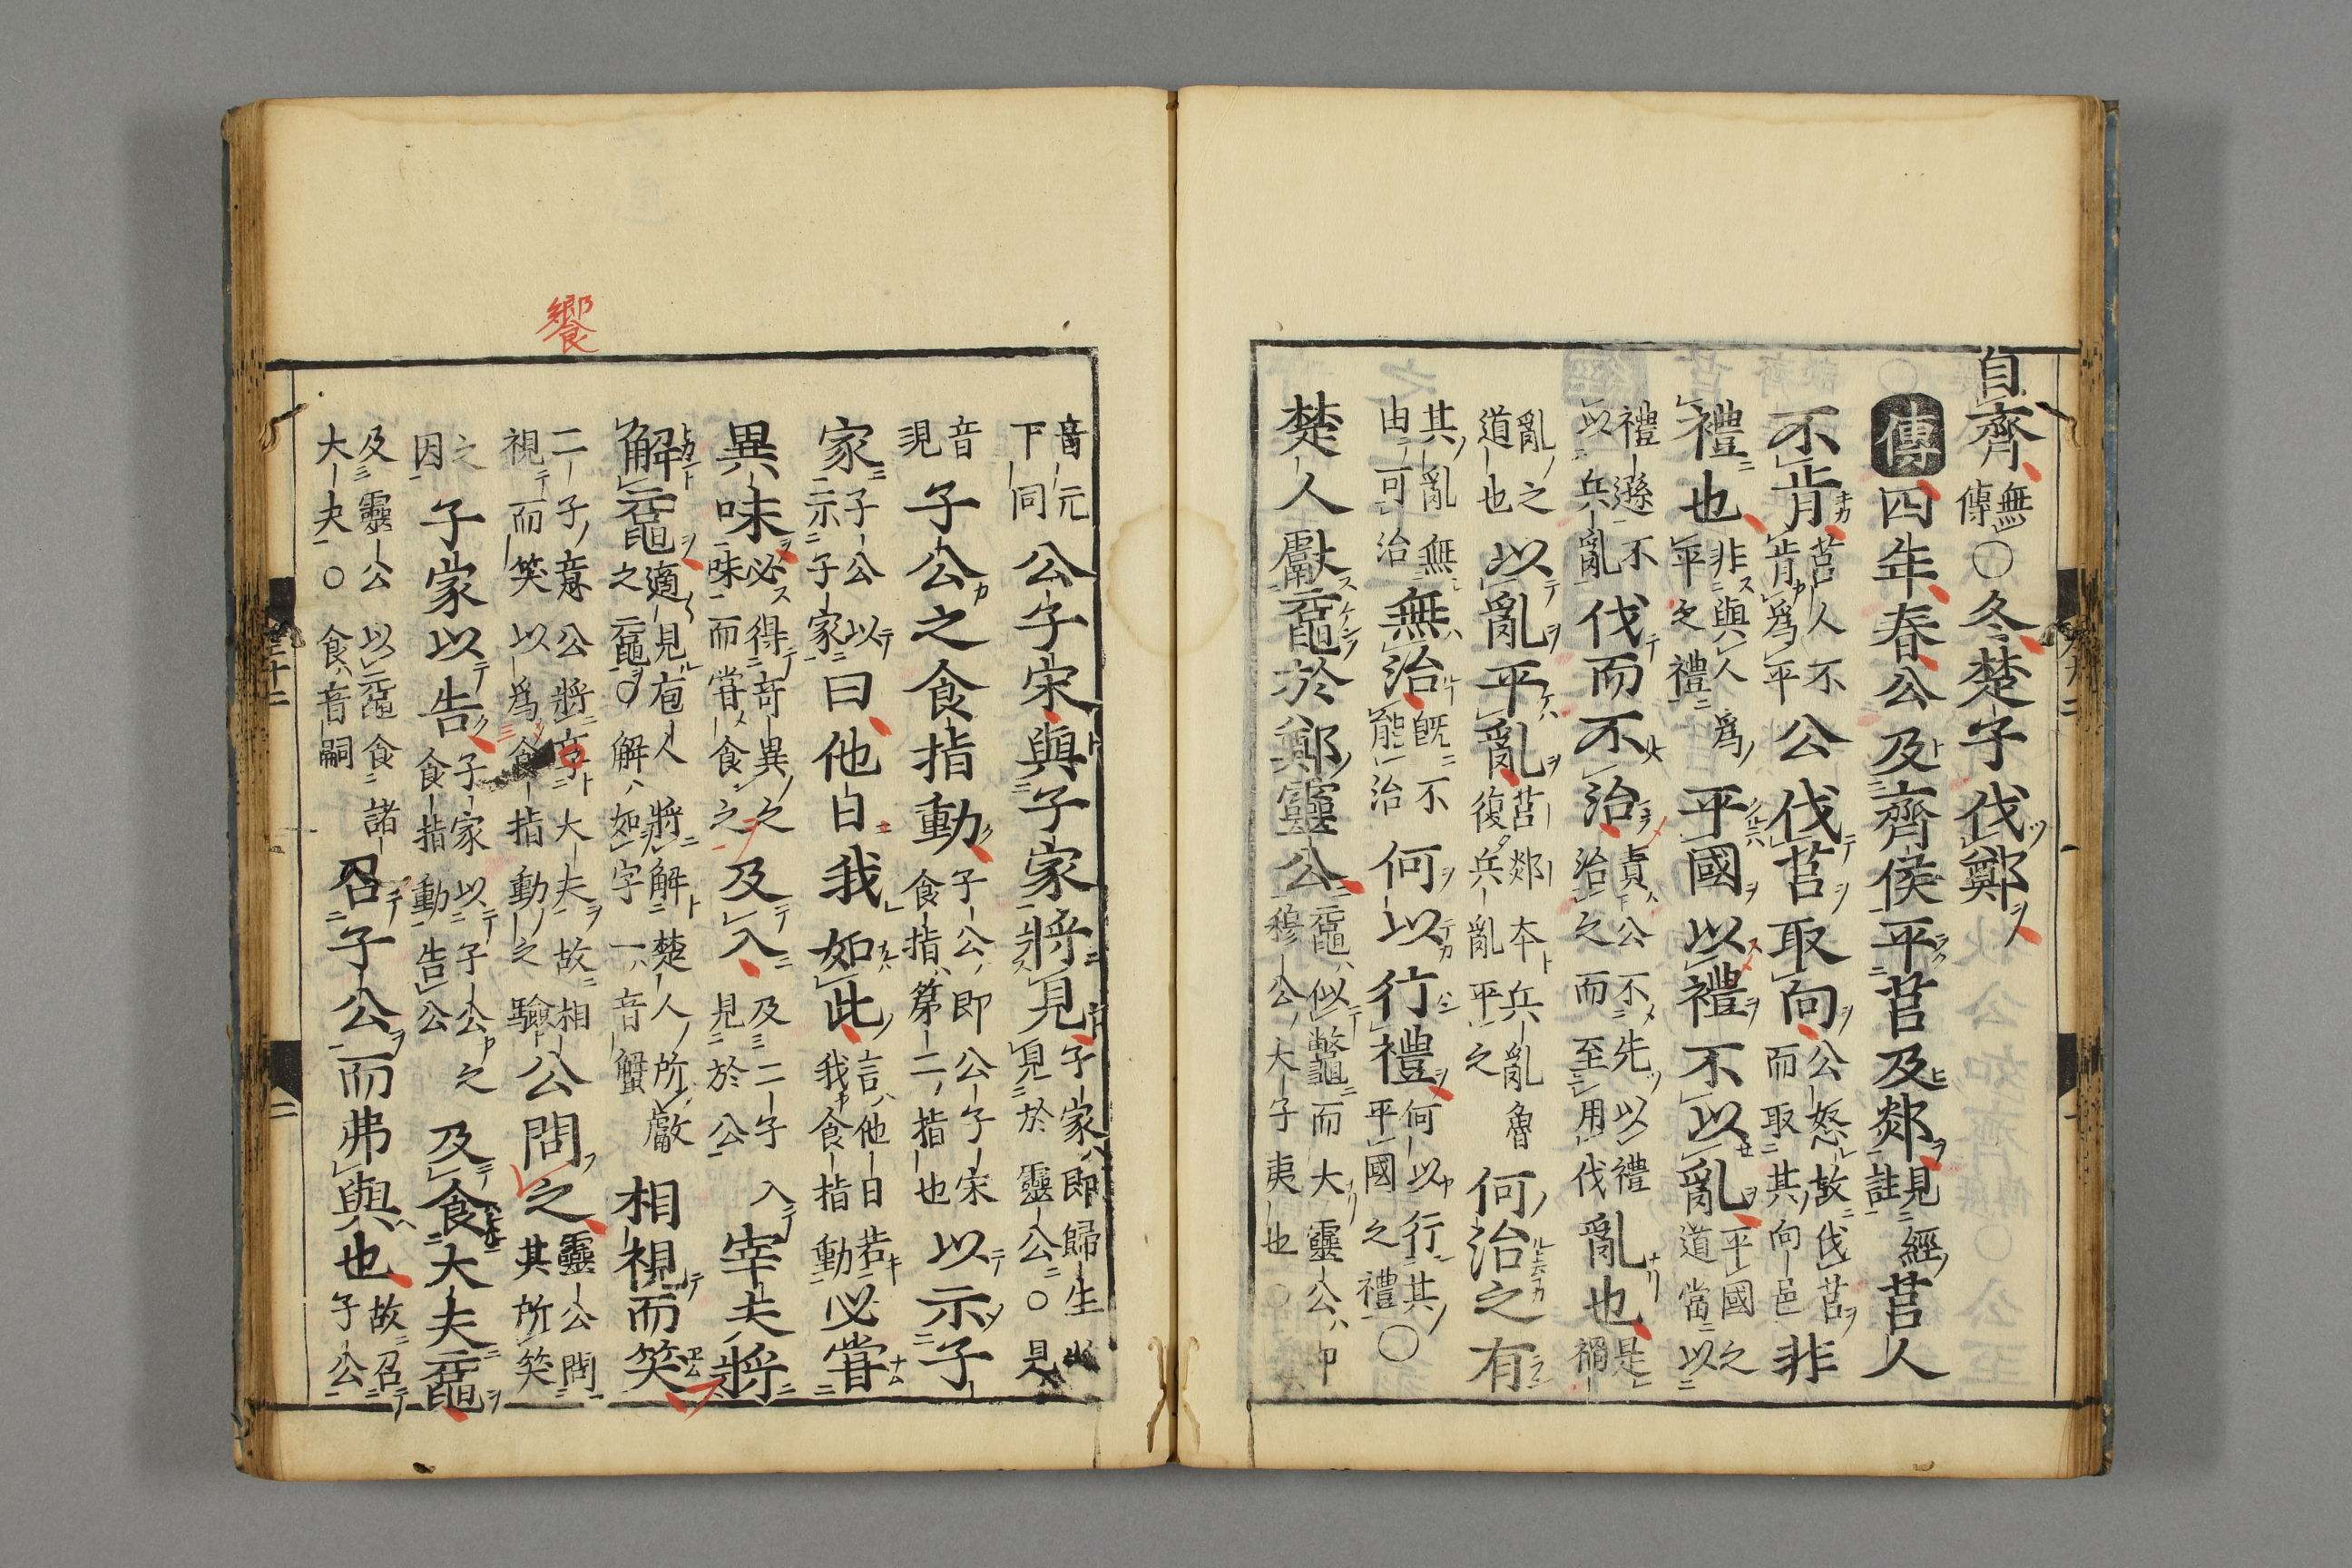 自齊無傳〇冬楚子伐鄭
傳四年春公及齊侯平莒及郯見經註莒人
不肯莒人不肯爲平公伐莒取向公怒故伐莒而取其向邑非
禮也非與人爲平之禮平國以禮不以亂平國之道當以
禮遜不以兵亂伐而不治責公不先以禮治之而至用伐亂也是禍
亂之道也以亂平亂莒郯本兵亂魯復兵亂平之何治之有
其亂無由可治無治既不能治何以行禮何以行其平國之禮〇
楚人獻黿於鄭靈公黿似鼈而大靈公即穆公大子夷也〇
饗
音元下同公子宋與子家將見子家即歸生見於靈公〇見
音現子公之食指動子公即公子宋食指第二指也以示子
家子公以示子家曰他日我如此言他日若我食指動必嘗
異味必得奇異之味而嘗食之及入及二子入見於公宰夫將
解黿適見庖人將解楚人所獻之黿〇解如字一音蟹相視而笑
二子意公將享大夫故相視而笑以爲食指動之驗公問之靈公問其所笑
之因子家以告子家以子公之食指動告公及食大夫黿
及靈公以黿食諸大夫〇食音嗣召子公而弗與也故召子公